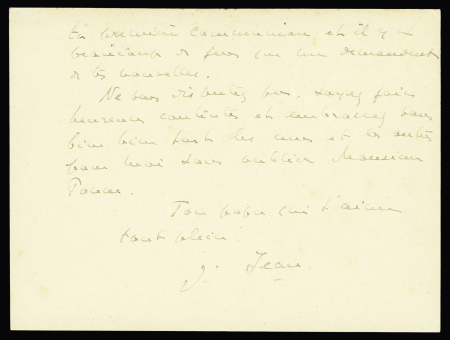 ta première communion, et il y a
beaucoup de gens qui me demandent
de tes nouvelles.
Ne vous disputez pas. Soyez
heureux contentes et embrassez vous
bien bien tous les unes et les autres
pour moi sans oublier Monsieur
Ton papa qui t'aime
tout plein.
J. Jean.